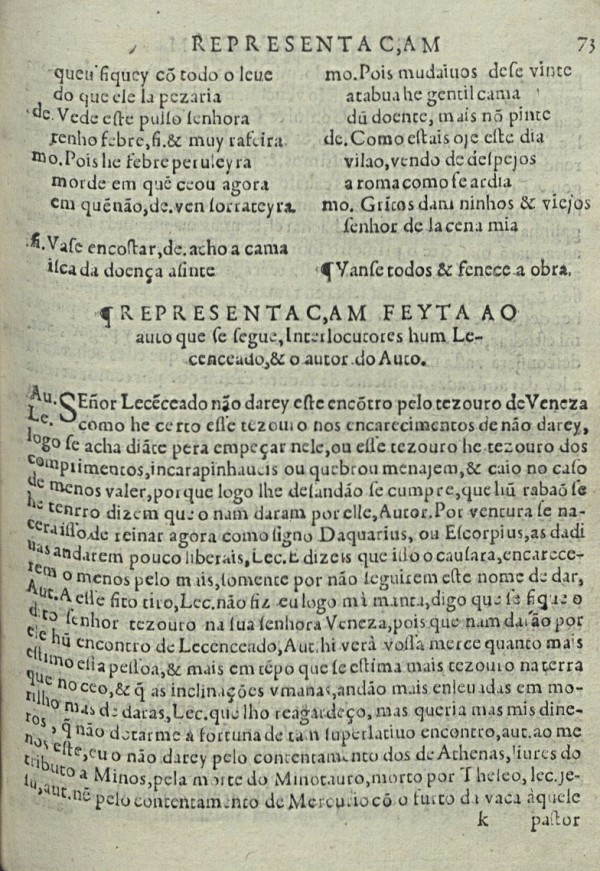 REPRESENTAC,AM 73
queu fiquey cõ todo o leue
do que ele la pezaria
de. Vede este pulso senhora
tenho febre, fi. & muy rafeira
mo. Pois he febre peruleyra
morde em quẽ ceou agora
em quẽ não, de. ven sorrateyra.
fi. Vase encostar, de. acho a cama
isca da doença asinte
mo. Pois mudaiuos dese vinte
atabua he gentil cama
dũ doente, mais nõ pinte
de. Como estais oje este dia
vilao, vendo de despejos
a roma como se ardia
mo. Gritos dam ninhos & viejos
señor de la cena mia
¶ Vanse todos & fenece a obra.
¶ REPRESENTAC,AM FEYTA AO
auto que se segue, Interlocutores hum Le-
cenceado, & o autor do Auto.
Au. SEñor Lecẽceado não darey este encõtro pelo tezouro de Veneza
Le. como he certo esse tezouro nos encarecimentos de não darey,
logo se acha diãte pera empeçar nele, ou esse tezouro he tezouro dos
comprimentos, incarapinhaueis ou quebrou menajem, & caio no caso
de menos valer, porque logo lhe desandão se cumpre, que hũ rabaõ se
he tenrro dizem que o nam daram por elle, Autor. Por ventura se na-
cera isso de reinar agora como signo Daquarius, ou Escorpius, as dadi
uas andarem pouco liberais, Lec. E dizeis que isso o causara, encarece-
rem o menos pelo mais, somente por não seguirem este nome de dar,
Aut. A esse fito tiro, Lec. não fiz eu logo mà manta, digo que se fique o
dito senhor tezouro na sua senhora Veneza, pois que nam darão por
ele hũ encontro de Lecenceado, Aut. hi verà vossa merce quanto mais
estimo essa pessoa, & mais em tẽpo que se estima mais tezouro na terra
que no ceo, & q̃ as inclinações vmanas, andão mais enleuadas em mo-
rilho mas de daras, Lec. que lho reagardeço, mas queria mas mis dine-
ros, q̃ não dotarme à fortuna de tam superlatiuo encontro, aut. ao me
nos este, eu o não darey pelo contentamento dos de Athenas, liures do
tributo a Minos, pela morte do Minotauro, morto por Theseo, lec. je-
su, aut. nẽ pelo contentamento de Mercurio cõ o furto da vaca àquele
k pastor